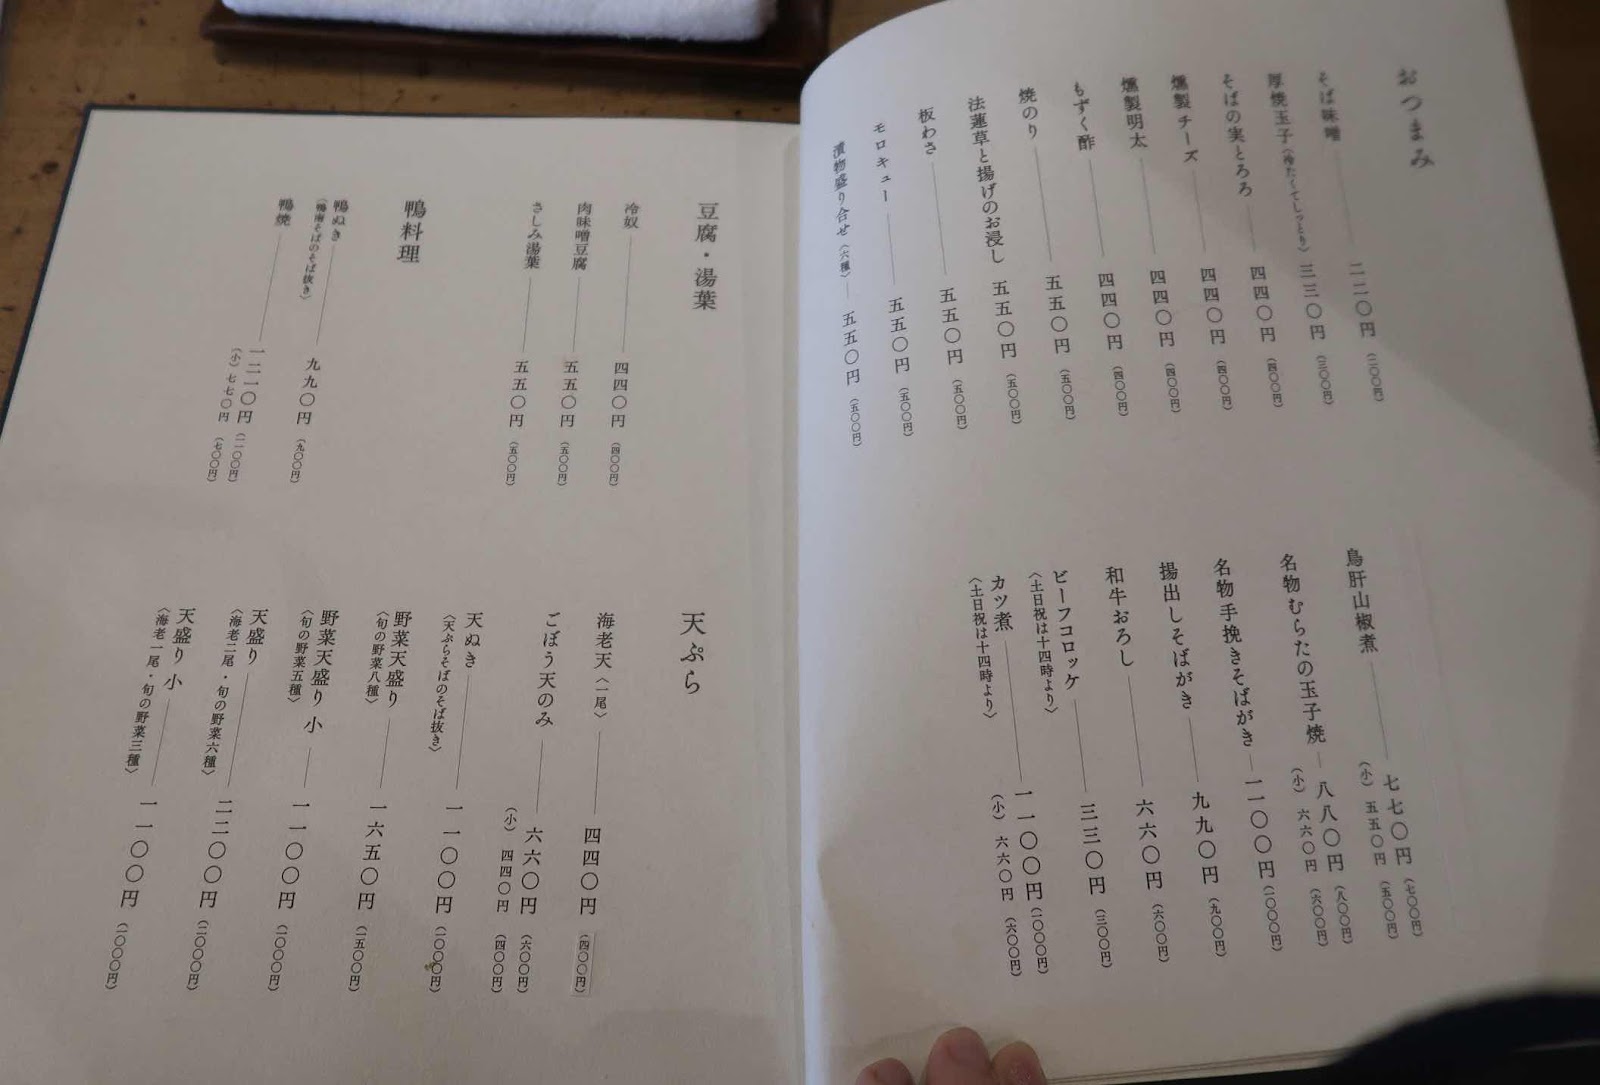 おつまみ
そば味噌 二二〇円 (二〇〇円)
厚焼玉子〈冷たくてしっとり〉 三三〇円 (三〇〇円)
そばの実とろろ 四四〇円 (四〇〇円)
燻製チーズ 四四〇円 (四〇〇円)
燻製明太 四四〇円 (四〇〇円)
もずく酢 四四〇円 (四〇〇円)
焼のり 五五〇円 (五〇〇円)
法蓮草と揚げのお浸し 五五〇円 (五〇〇円)
板わさ 五五〇円 (五〇〇円)
モロキュー 五五〇円 (五〇〇円)
漬物盛り合せ〈六種〉 五五〇円 (五〇〇円)
鳥肝山椒煮 七七〇円 (七〇〇円)
(小) 五五〇円 (五〇〇円)
名物むらたの玉子焼 八八〇円 (八〇〇円)
(小) 六六〇円 (六〇〇円)
名物手挽きそばがき 一一〇〇円 (一〇〇〇円)
揚出しそばがき 九九〇円 (九〇〇円)
和牛おろし 六六〇円 (六〇〇円)
ビーフコロッケ 三三〇円 (三〇〇円)
〈土日祝は十四時より〉
カツ煮 一一〇〇円 (一〇〇〇円)
〈土日祝は十四時より〉 (小) 六六〇円 (六〇〇円)
豆腐・湯葉
冷奴 四四〇円 (四〇〇円)
肉味噌豆腐 五五〇円 (五〇〇円)
さしみ湯葉 五五〇円 (五〇〇円)
鴨料理
鴨ぬき 九九〇円 (九〇〇円)
〈鴨南そばのそば抜き〉
鴨焼 一二一〇円 (一一〇〇円)
(小) 七七〇円 (七〇〇円)
天ぷら
海老天〈一尾〉 四四〇円 (四〇〇円)
ごぼう天のみ 六六〇円 (六〇〇円)
(小) 四四〇円 (四〇〇円)
天ぬき 一一〇〇円 (一〇〇〇円)
〈天ぷらそばのそば抜き〉
野菜天盛り 一六五〇円 (一五〇〇円)
〈旬の野菜八種〉
野菜天盛り 小 一一〇〇円 (一〇〇〇円)
〈旬の野菜五種〉
天盛り 二二〇〇円 (二〇〇〇円)
〈海老二尾・旬の野菜六種〉
天盛り 小 一一〇〇円 (一〇〇〇円)
〈海老一尾・旬の野菜三種〉